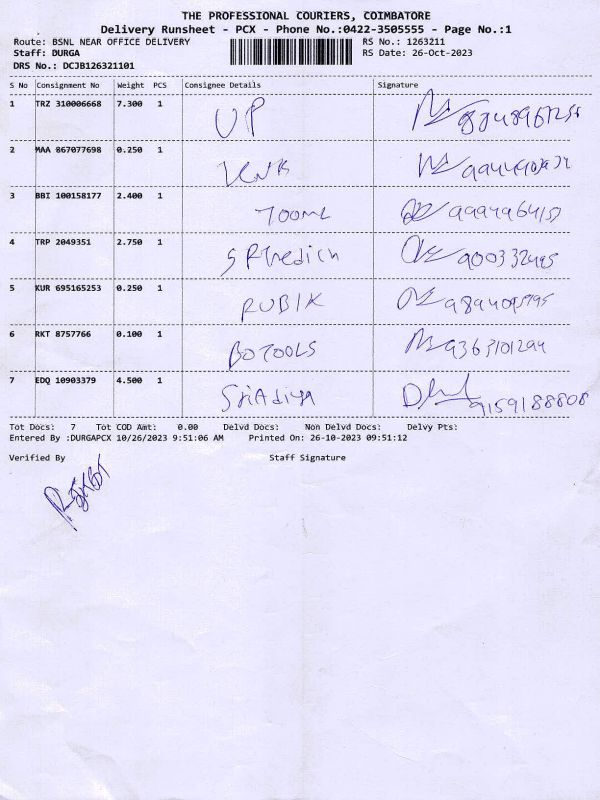 THE PROFESSIONAL COURIERS, COIMBATORE
Delivery Runsheet - PCX - Phone No.:0422-3505555 - Page No.:1
Route: BSNL NEAR OFFICE DELIVERY RS No.: 1263211
Staff: DURGA RS Date: 26-Oct-2023
DRS No.: DCJB126321101
S No Consignment No Weight PCS Consignee Details Signature
1 TRZ 310006668 7.300 1 UP
2 MAA 867077698 0.250 1
3 BBI 100158177 2.400 1
4 TRP 2049351 2.750 1
5 KUR 695165253 0.250 1 RUBIK
6 RKT 8757766 0.100 1 BOTOOLS 9363101294
7 EDQ 10903379 4.500 1 SriAdiya 9159188808
Tot Docs: 7 Tot COD Amt: 0.00 Delvd Docs: Non Delvd Docs: Delvy Pts:
Entered By :DURGAPCX 10/26/2023 9:51:06 AM Printed On: 26-10-2023 09:51:12
Verified By Staff Signature